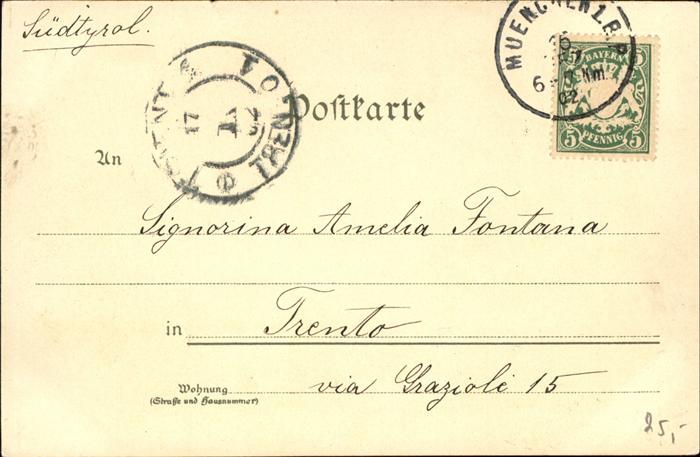 Südtyrol.
MUENCHEN 1. B.P.
BAYERN
5 5
PFENNIG
TRIENT TRENTO
17
Postkarte
An
Signorina Amelia Fontana
in Trento
Wohnung
(Straße und Hausnummer)
via Grazioli 15
25,-